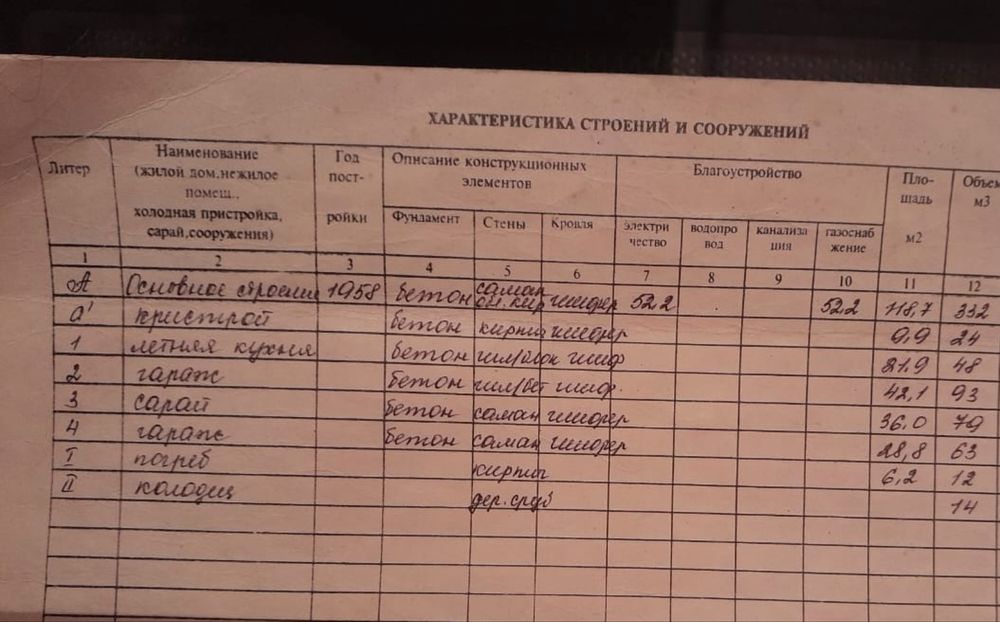 ХАРАКТЕРИСТИКА СТРОЕНИЙ И СООРУЖЕНИЙ
Литер Наименование (жилой дом,нежилое помещ., холодная пристройка, сарай,сооружения) Год пост- ройки Описание конструкционных элементов Благоустройство Пло- щадь м2 Объем м3
Фундамент Стены Кровля электри чество водопро вод канализа ция газоснаб жение
1 2 3 4 5 6 7 8 9 10 11 12
А Основное строение 1958 бетон саман обл. кир шифер 52,2 52,2 118,7 332
а' пристрой бетон кирпич шифер 9,9 24
1 летняя кухня бетон шл/блок шиф 21,9 48
2 гараж бетон шл/бет шиф. 42,1 93
3 сарай бетон саман шифер 36,0 79
4 гараж бетон саман шифер 28,8 63
I погреб кирпич 6,2 12
II колодец дер. сруб 14